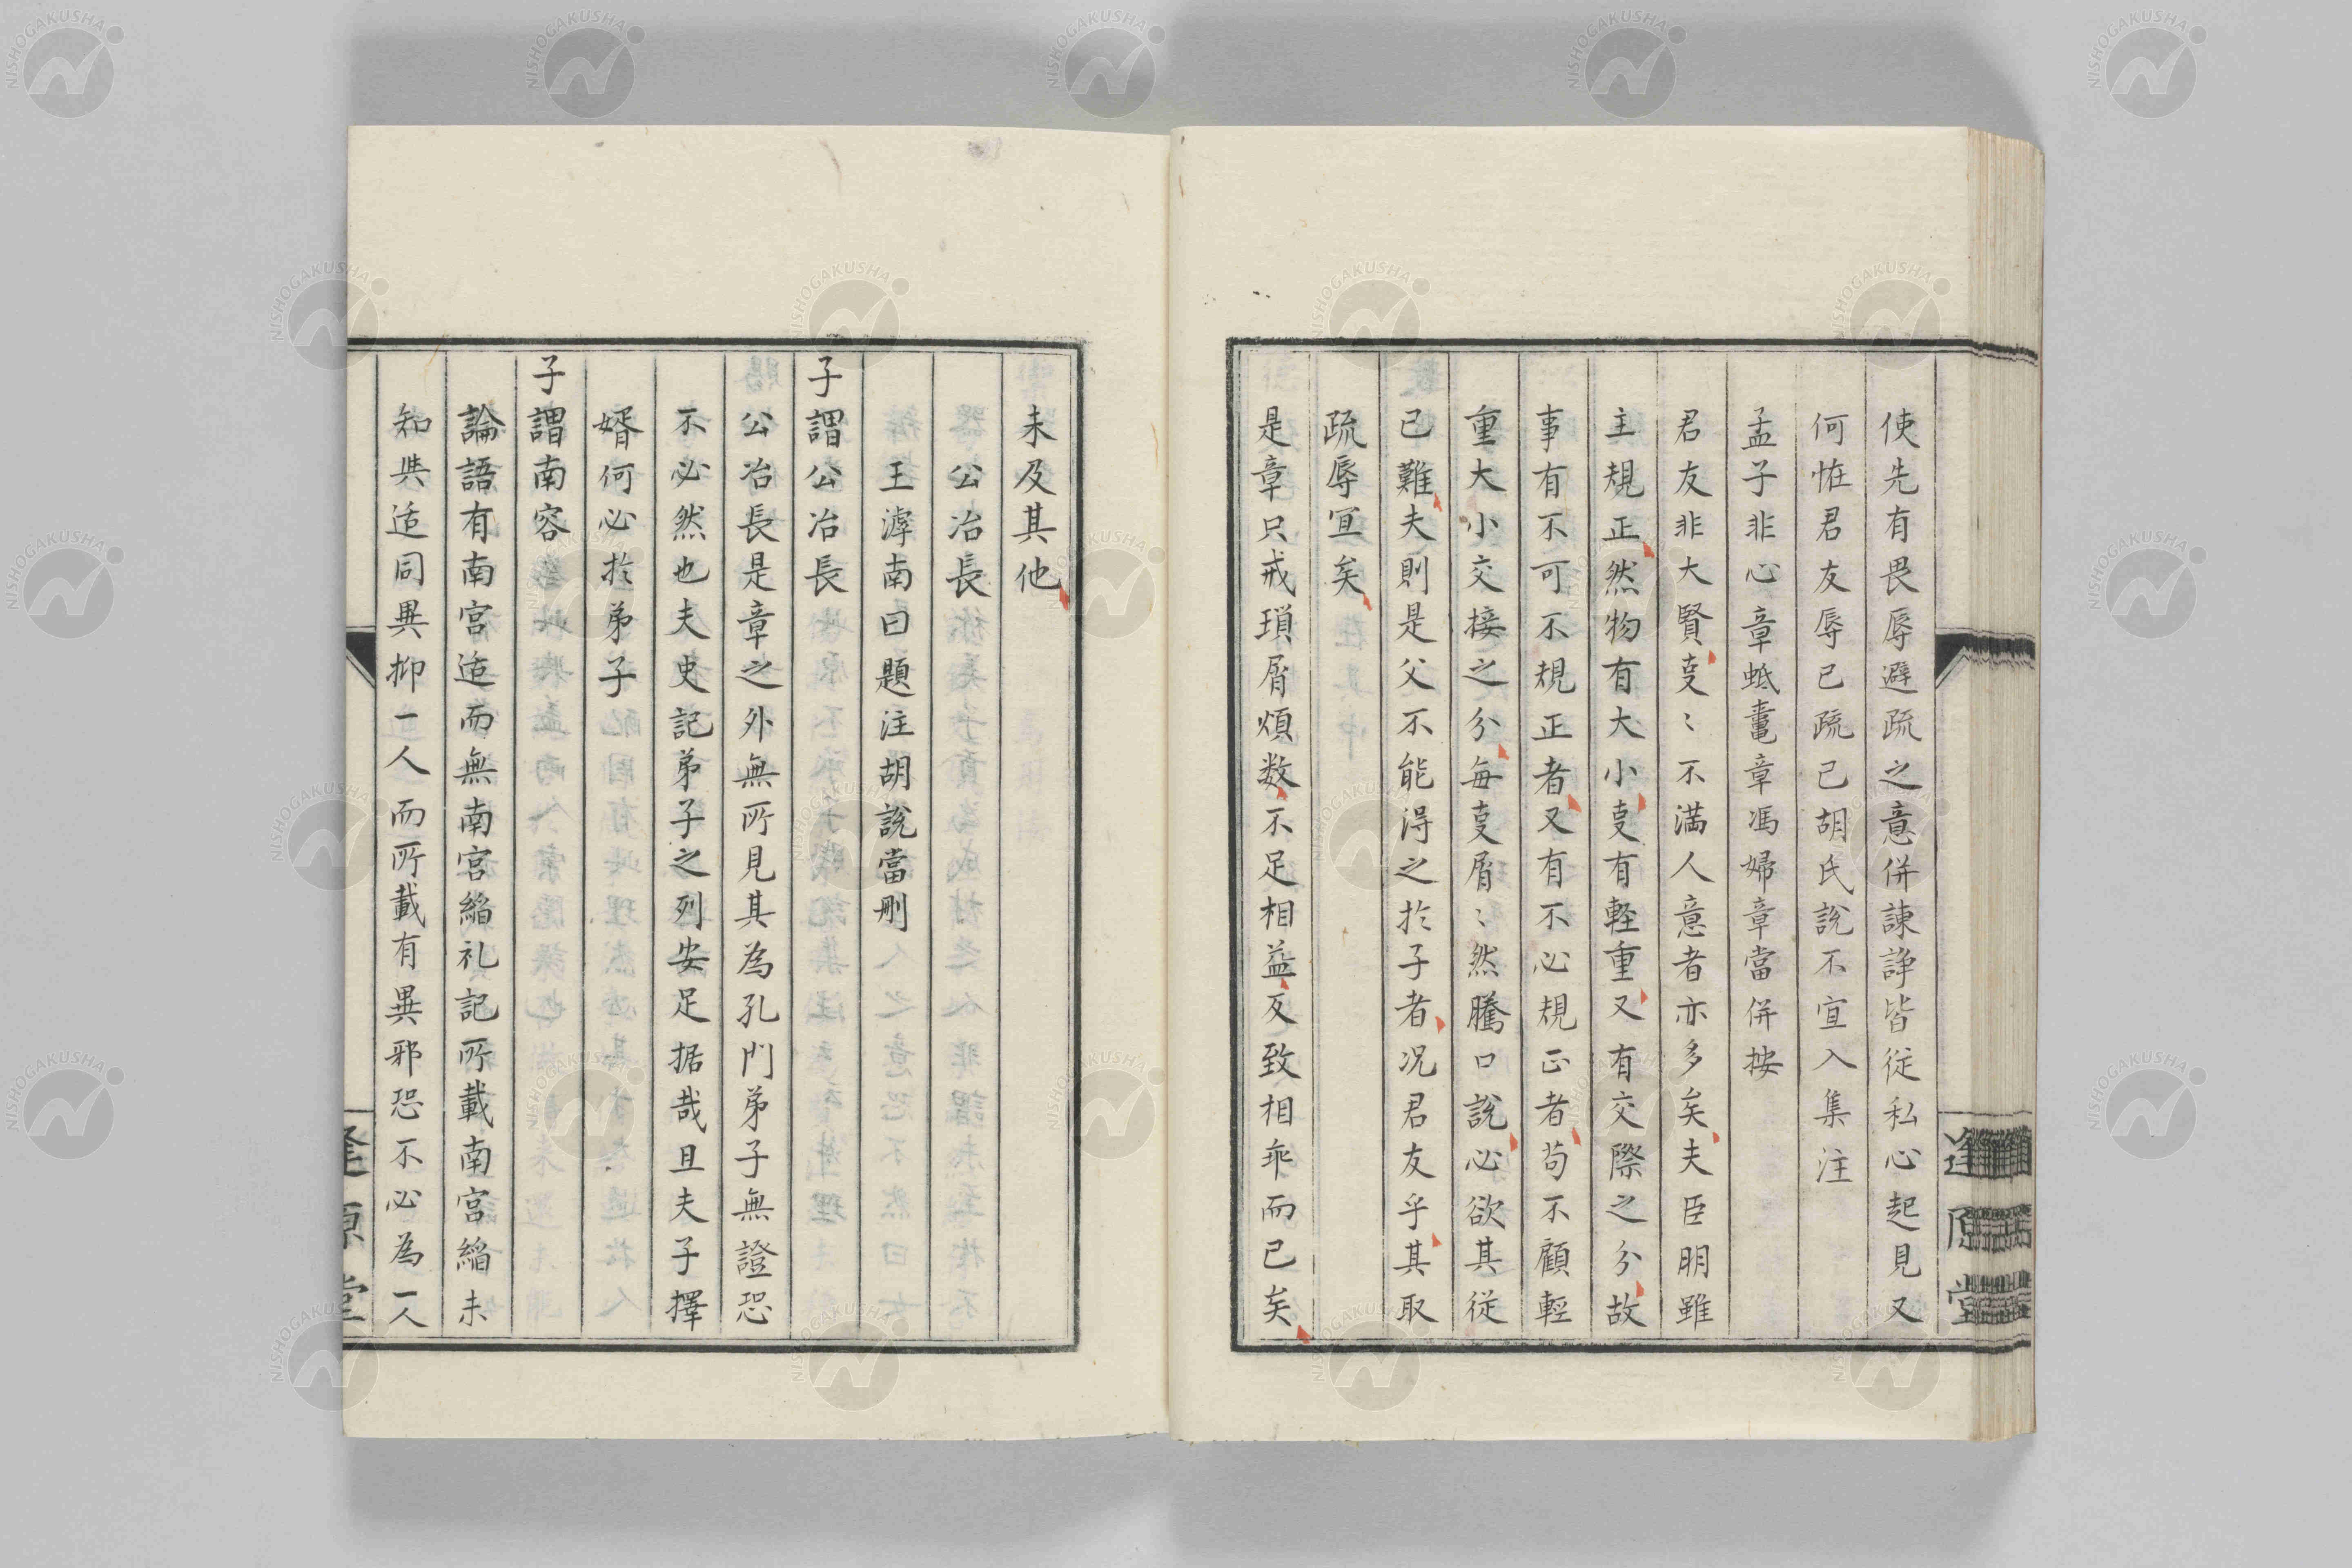 使先有畏辱避疏之意併諫諍皆従私心起見又
何恠君友辱已疏已胡氏說不宜入集注
孟子非心章蚳鼃章馮婦章當併按
君友非大賢叓〻不満人意者亦多矣夫臣明雖
主規正然物有大小叓有軽重又有交際之分故
事有不可不規正者又有不必規正者苟不顧輕
重大小交接之分每叓屑〻然騰口說必欲其従
已難夫則是父不能得之於子者况君友乎其取
疏辱冝矣
是章只戒瑣屑煩数不足相益反致相乖而已矣
逢原堂
未及其他
公冶長
王滹南曰題注胡說當刪
子謂公冶長
公冶長是章之外無所見其為孔門弟子無證恐
不必然也夫史記弟子之列安足据哉且夫子擇
婿何必於弟子
子謂南容
論語有南宮适而無南宮縚礼記所載南宮縚未
知與适同異抑一人而所載有異邪恐不必為一人
逢原堂
NISHOGAKUSHA